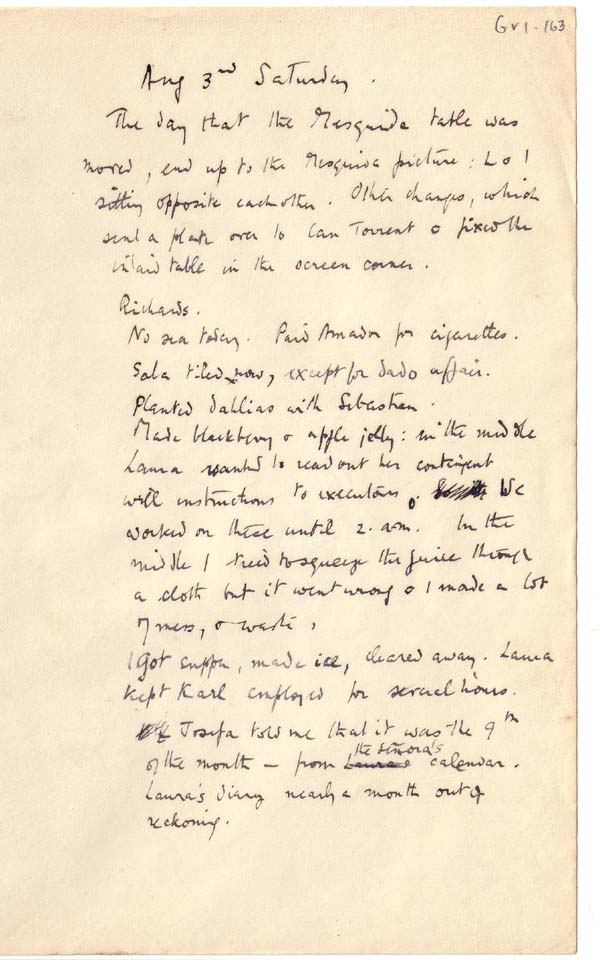 Gv1-163
Aug 3rd Saturday.
The day that the Mesquida table was
moved, end up to the Mesquida picture: L & I
sitting opposite each other. Other changes, which
sent a plate over to Can Torrent & fixed the
inlaid table in the screen corner.
Richards.
No sea today. Paid Amador for cigarettes.
Sala tiled now, except for dado affair.
Planted dahlias with Sebastian.
Made blackberry & apple jelly: in the middle
Laura wanted to read out her contingent
will instructions to executors. We
worked on these until 2. a.m. In the
middle I tried to squeeze the juice through
a cloth but it went wrong & I made a lot
of mess, & waste.
I got supper, made ice, cleared away. Laura
kept Karl employed for several hours.
Josefa told me that it was the 9th
of the month – from Laura's the señora's calendar.
Laura's diary nearly a month out of
reckoning.